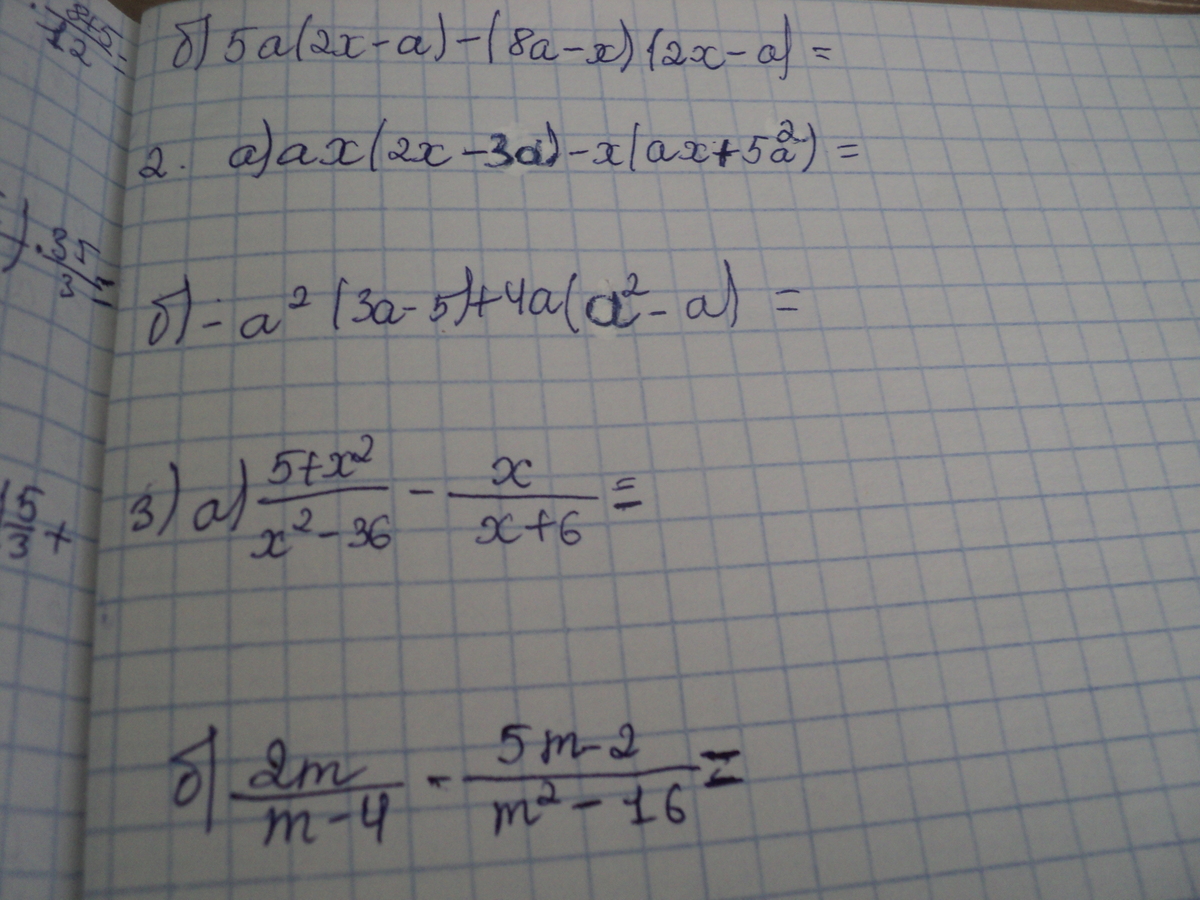 б) 5a(2x-a)-(8a-x)(2x-a)=
2. a) ax(2x-3a)-x(ax+5a²)=
б) -a²(3a-5)+4a(a²-a) =
3) a) (5+x²)/(x²-36) - x/(x+6) =
б) 2m/(m-4) - (5m-2)/(m²-16) =